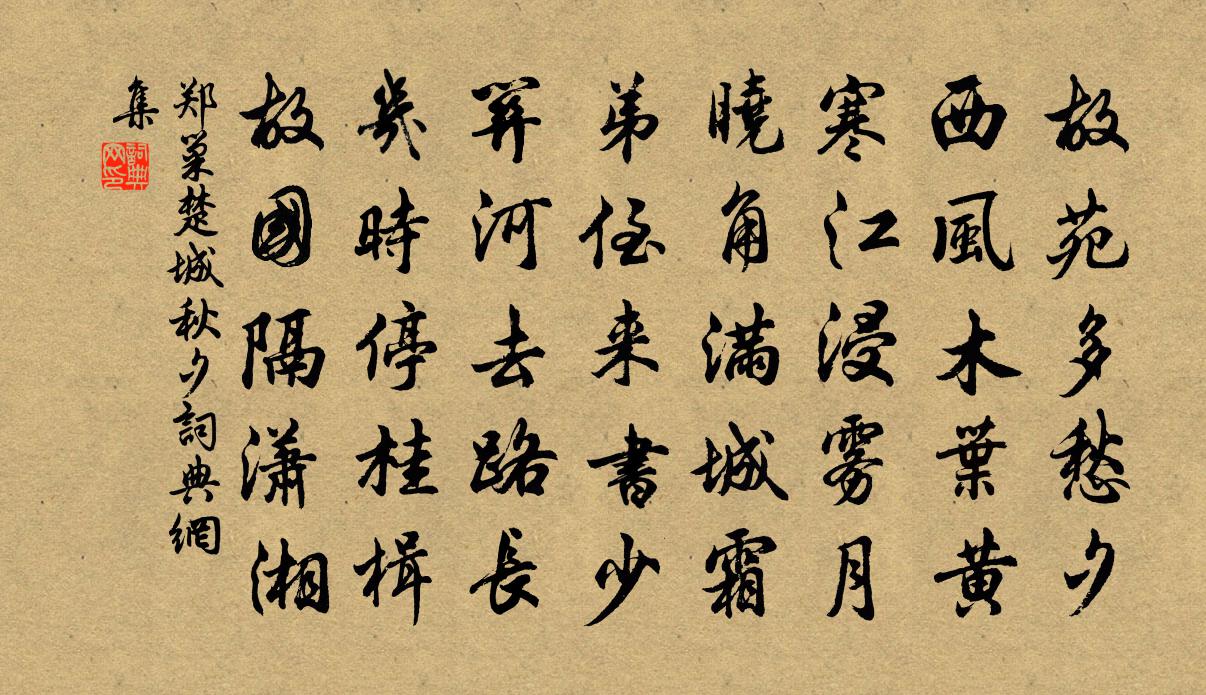 故苑多愁夕
西風木葉黄
寒江浸雾月
曉角滿城霜
弟侄来書少
關河去路長
幾時停桂楫
故國隔潇湘
郑巢楚城秋夕詞典網
集
詞典网印